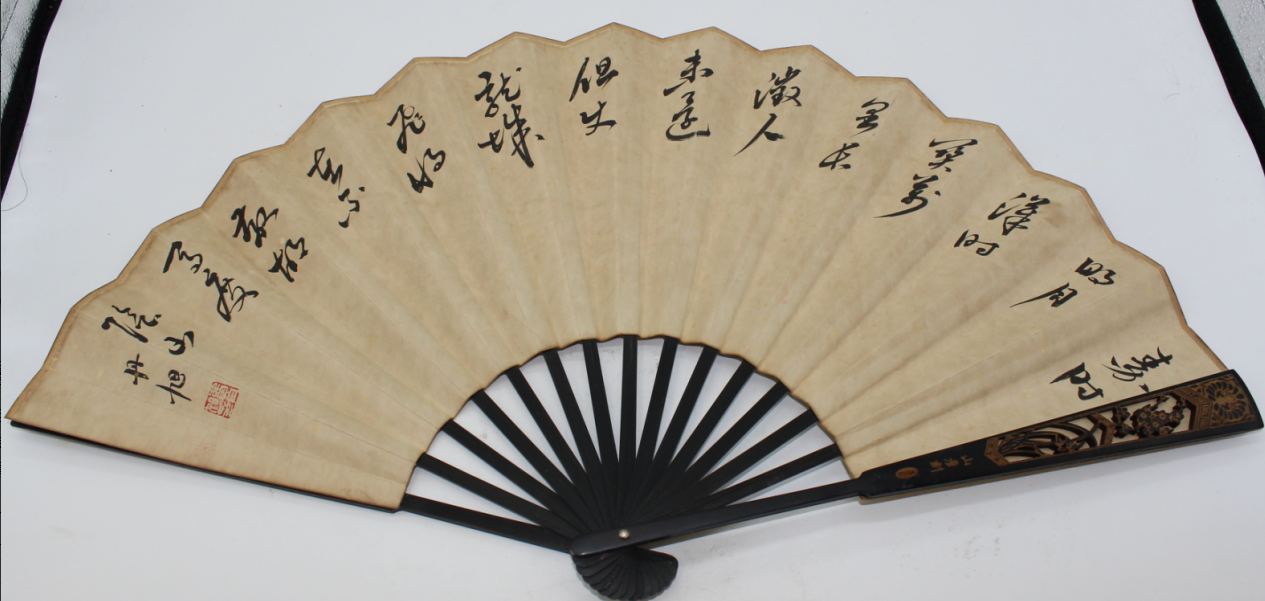 秦时
明月
漢时
關萬
里长
徵人
未還
但使
龍城
飛将
在不
教胡
馬度
陰山
丹旭